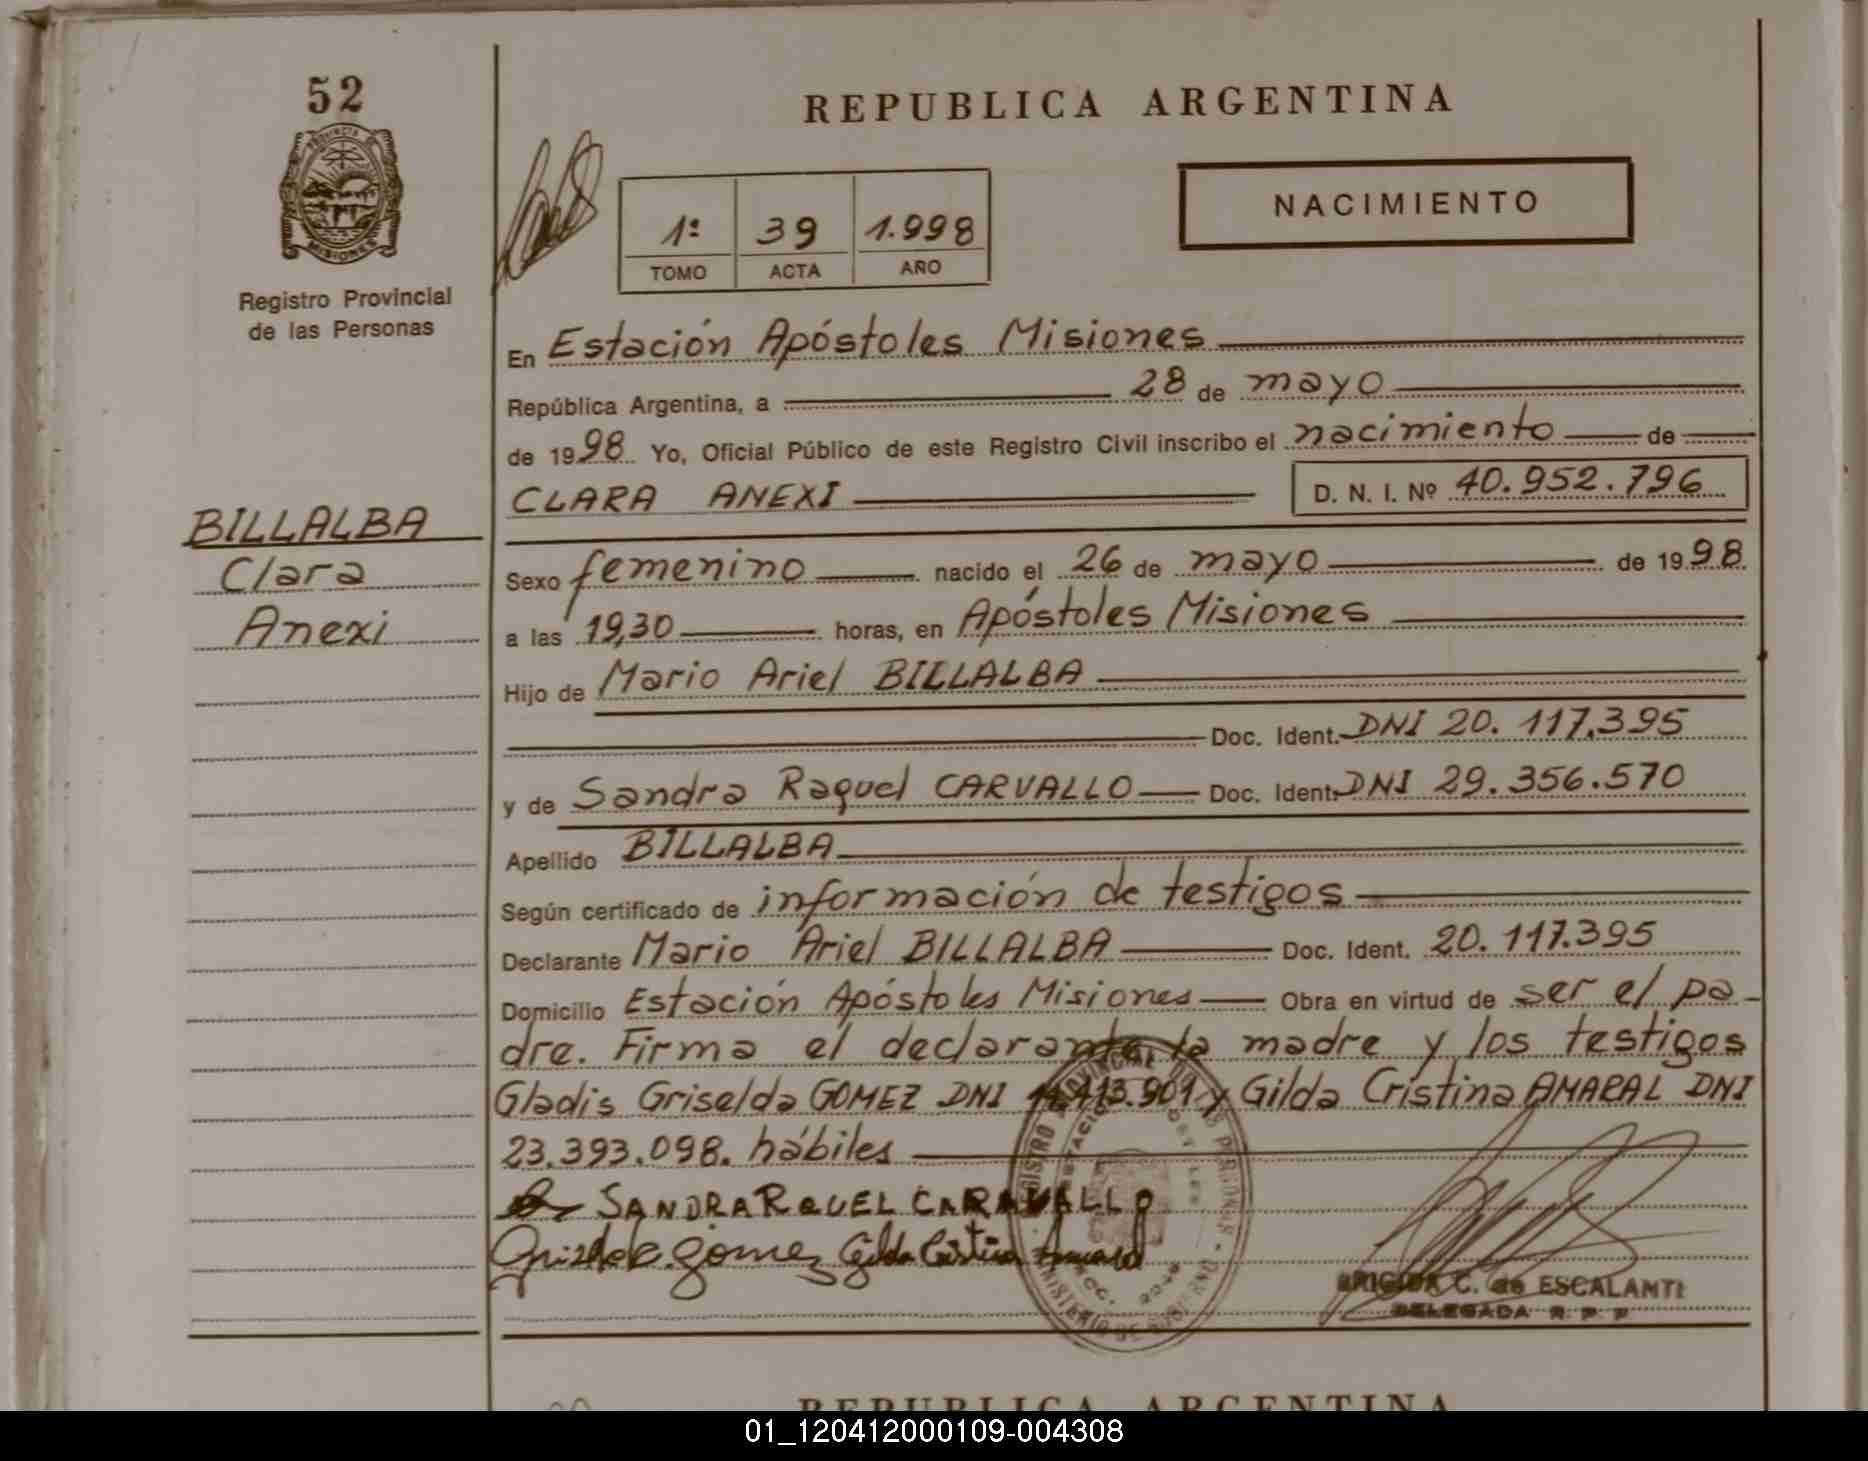 52
PROVINCIA DE
MISIONES
Registro Provincial
de las Personas
BILLALBA
Clara
Anexi
REPUBLICA ARGENTINA
1º 39 1.998
TOMO ACTA AÑO
NACIMIENTO
En Estación Apóstoles Misiones
República Argentina, a 28 de mayo
de 1998 Yo, Oficial Público de este Registro Civil inscribo el nacimiento de
CLARA ANEXI D. N. I. Nº 40.952.796
Sexo femenino nacido el 26 de mayo de 1998
a las 19,30 horas, en Apóstoles Misiones
Hijo de Mario Ariel BILLALBA
Doc. Ident. DNI 20.117.395
y de Sandra Raquel CARVALLO Doc. Ident. DNI 29.356.570
Apellido BILLALBA
Según certificado de información de testigos
Declarante Mario Ariel BILLALBA Doc. Ident. 20.117.395
Domicilio Estación Apóstoles Misiones Obra en virtud de ser el pa-
dre. Firma el declarante, la madre y los testigos
Gladis Griselda GOMEZ DNI 413.901 y Gilda Cristina AMARAL DNI
23.393.098. hábiles
SANDRA RQUEL CARAVALLO
Gomez Gilda Cristina Amaral
REGISTRO PROVINCIAL DE LAS PERSONAS
BRIGIDA C. de ESCALANTE
DELEGADA R. P. P
REPUBLICA ARGENTINA
01_120412000109-004308